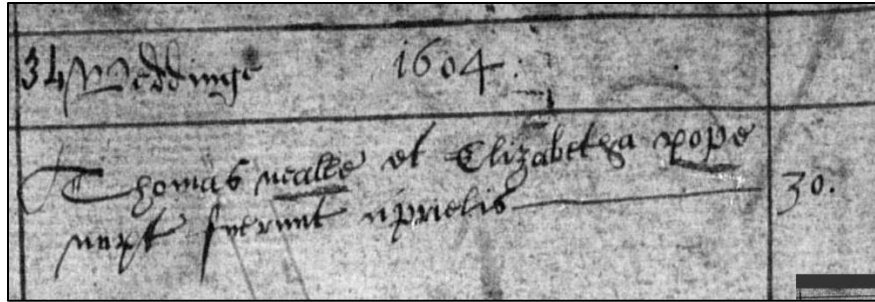 34 Weddinge 1604
Thomas nealle et Elizabetha pope
nupt fuerunt Aprielis 30.